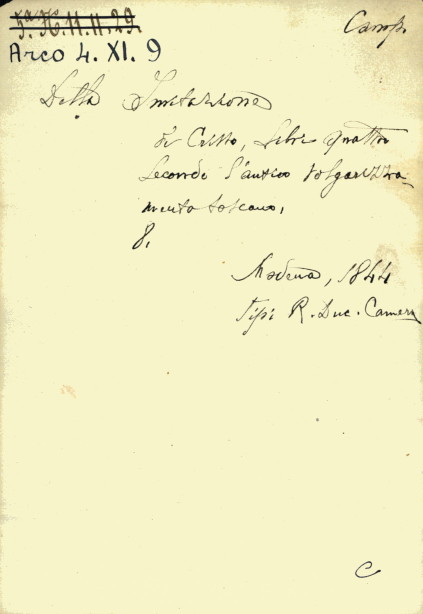 Camp.
Arco 4. XI. 9
Della Imitazione
di Cristo, Libri quattro
secondo l'antico volgarizza-
mento toscano,
8.
Modena, 1844
Tipi R. Duc. Camera
C